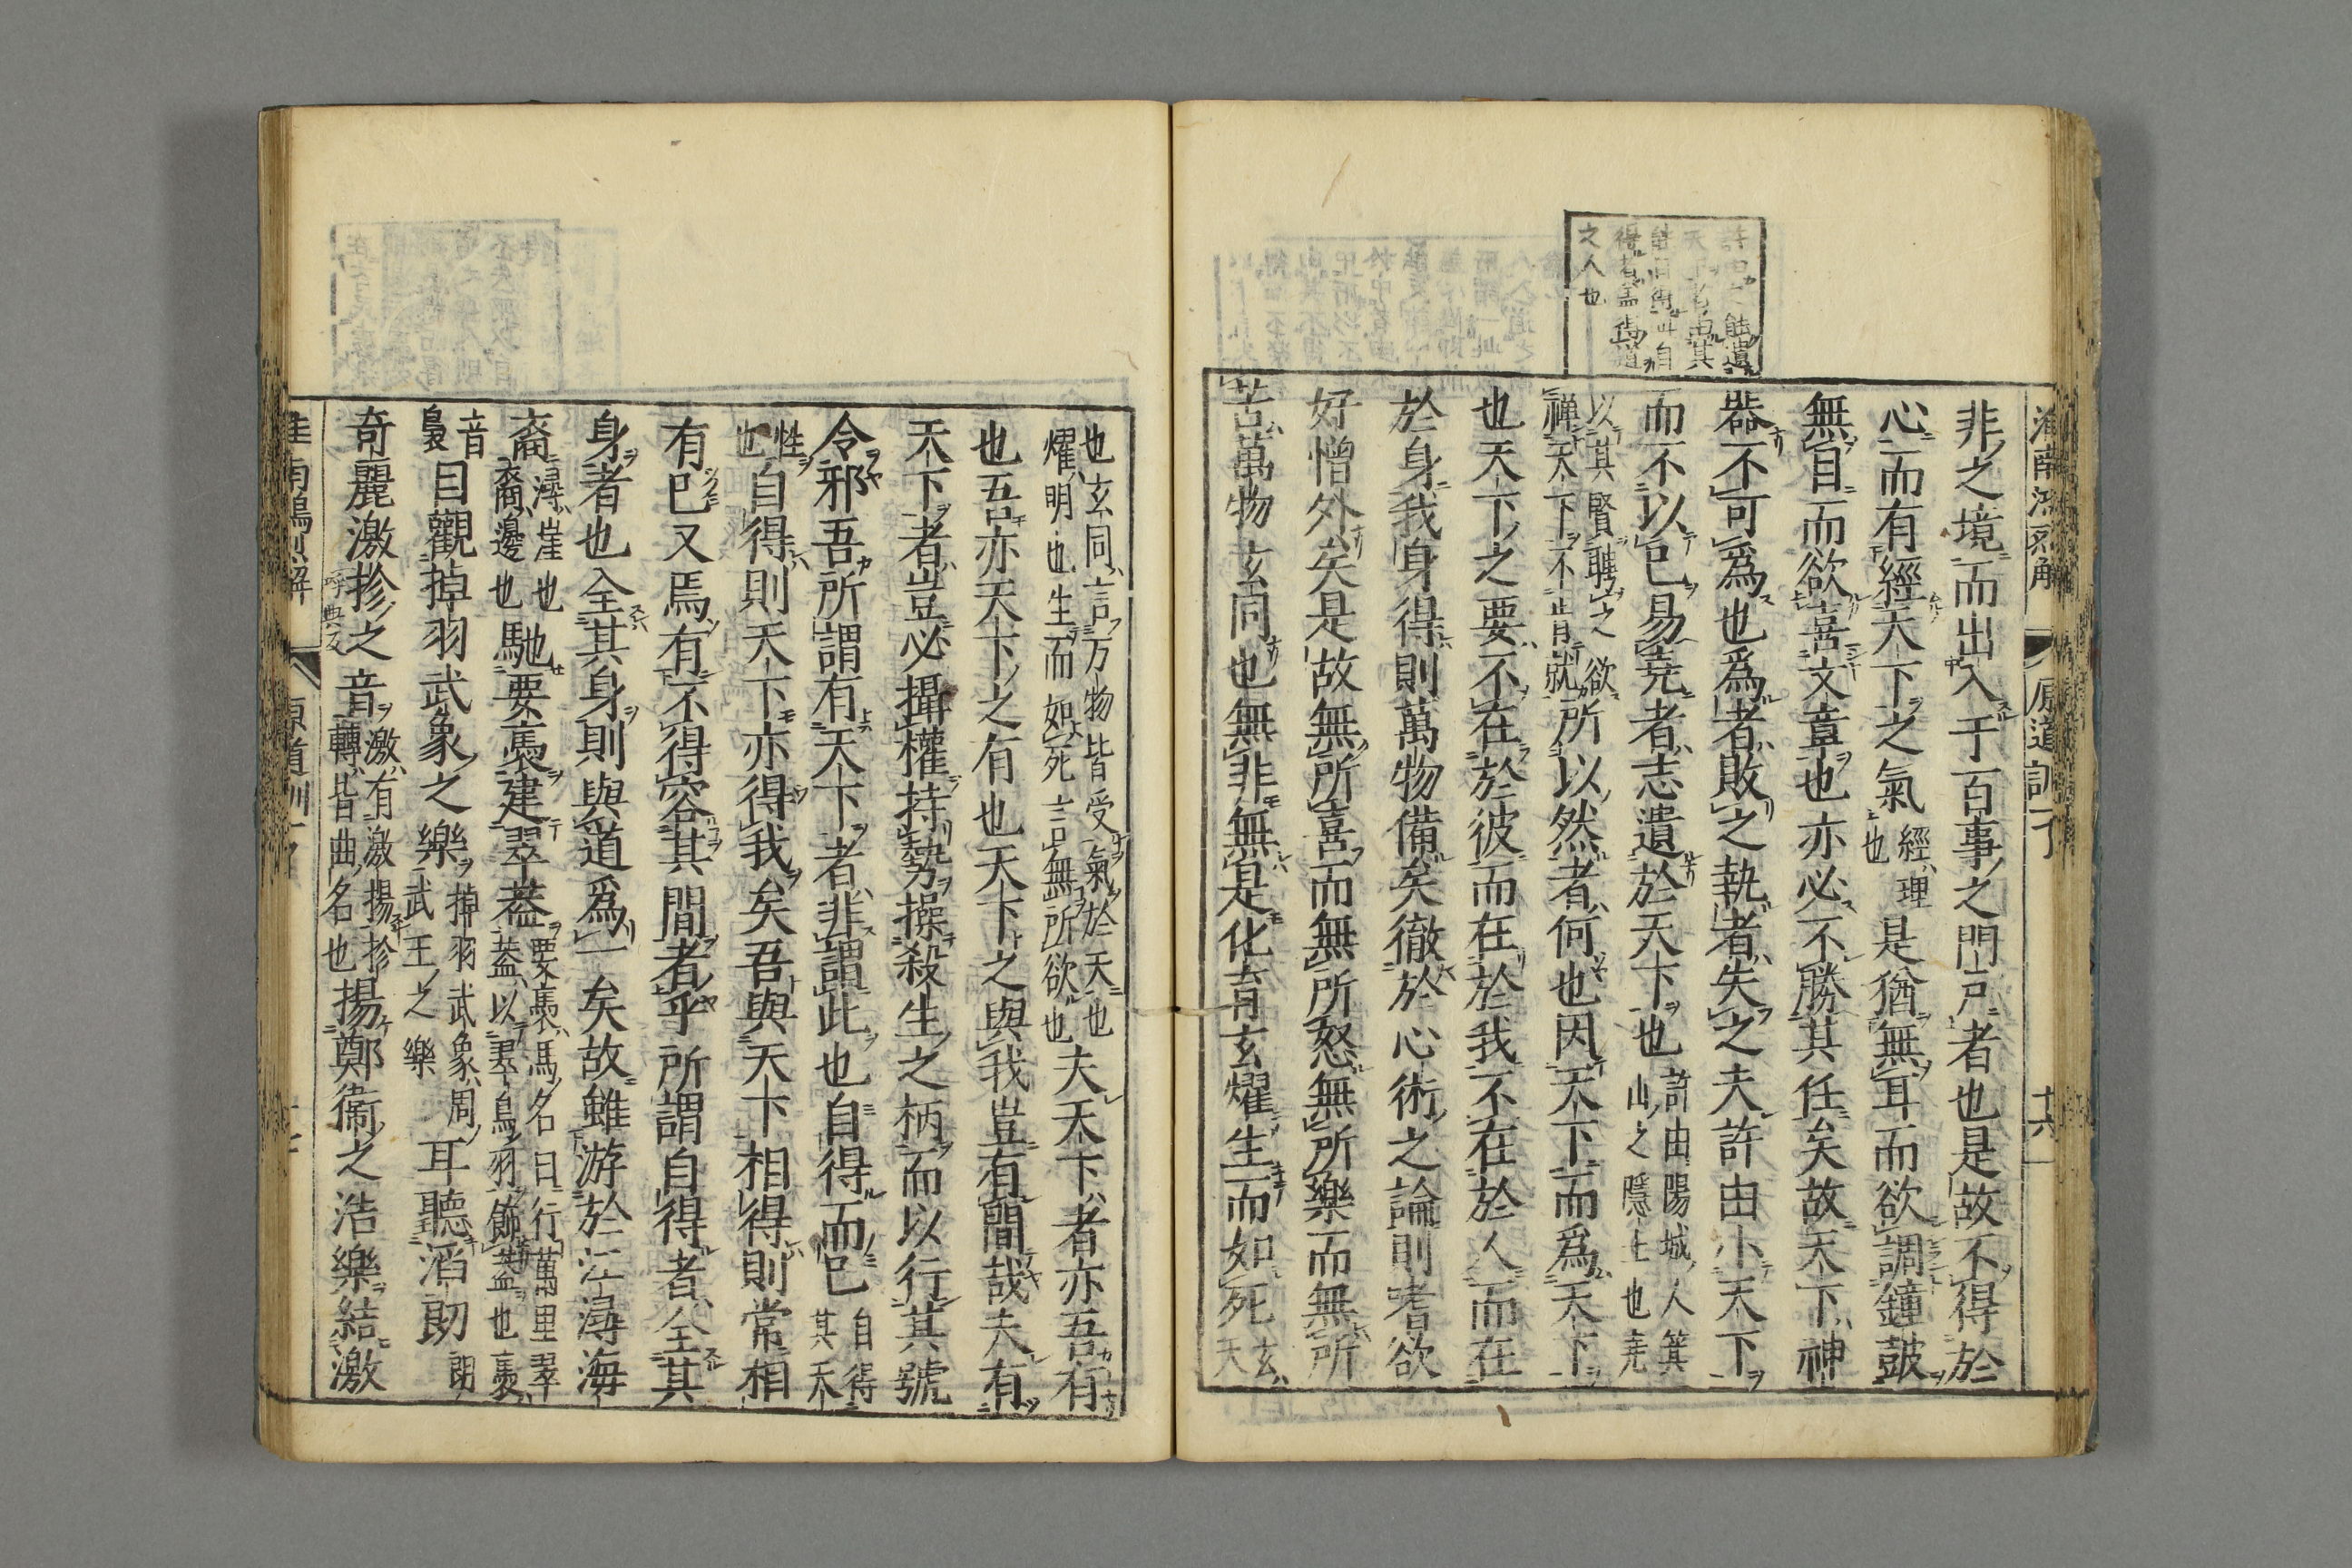 淮南鴻烈解 原道訓下 十六
之人也
非之境而出入于百事之門戸者也是故不得於
心而有經天下之氣經理也是猶無耳而欲調鐘鼓
無目而欲喜文章也亦必不勝其任矣故天下神
器不可爲也爲者敗之執者失之夫許由小天下
而不以已易堯者志遺於天下也許由陽城人箕山之隱士也堯
以其賢聘之欲禪天下不肯就所以然者何也因天下而爲天下
也天下之要不在於彼而在於我不在於人而在
於身我身得則萬物備矣徹於心術之論則嗜欲
好憎外矣是故無所喜而無所怒無所樂而無所
苦萬物玄同也無非無是化育玄燿生而如死玄天
也玄同言万物皆受氣於天也燿明也生而如死言無所欲也夫天下者亦吾有
也吾亦天下之有也天下之與我豈有間哉夫有
天下者豈必攝權持勢操殺生之柄而以行其號
令邪吾所謂有天下者非謂此也自得而已自得其天
性也自得則天下亦得我矣吾與天下相得則常相
有已又焉有不得容其間者乎所謂自得者全其
身者也全其身則與道爲一矣故雖游於江潯海
裔潯崖也裔邊也馳要褭建翠葢要褭馬名日行萬里翠葢以翠鳥羽飾葢也褭
音梟目觀掉羽武象之樂掉羽武象周武王之樂耳聽滔朗朗
奇麗激抮之音激有激揚抮轉皆曲名也揚鄭衞之浩樂結激
呼典反
淮南鴻烈解 原道訓下